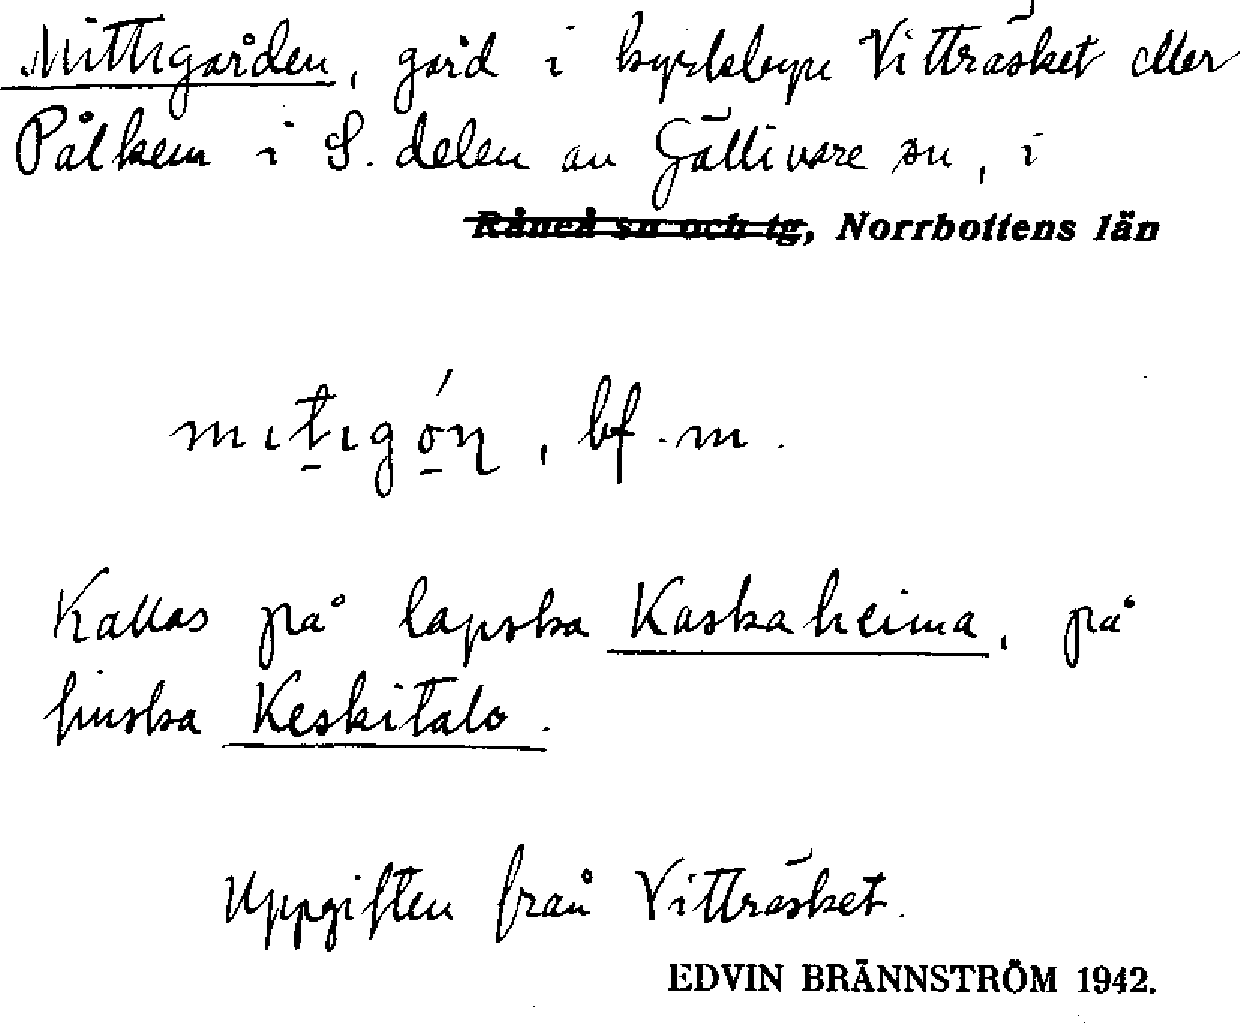 Mittigården, gård i kyrkbyn Vitträsket eller
Pålkem i S. delen av Gällivare sn, i
Råneå sn och tg, Norrbottens län
mıt̲ıgó̲ŋ, bf. m.
Kallas på lapska Kaskaheima, på
finska Keskitalo.
Uppgiften från Vitträsket.
EDVIN BRÄNNSTRÖM 1942.